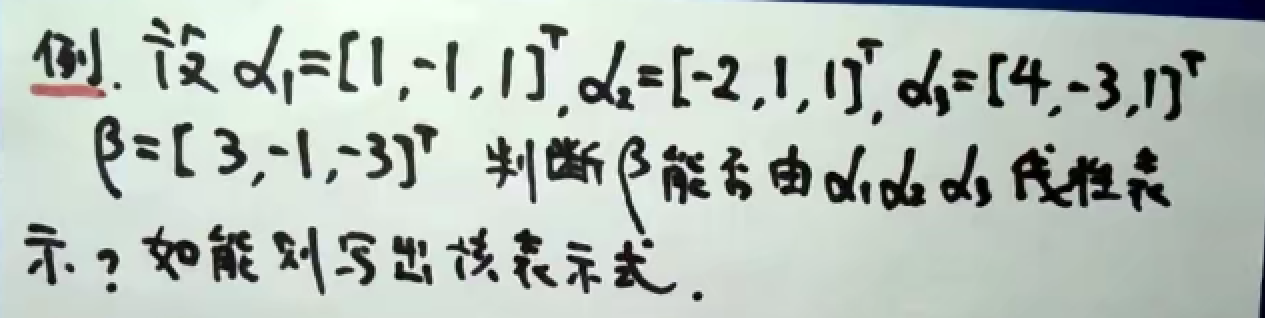 例. 设 α₁=[1,-1,1]ᵀ, α₂=[-2,1,1]ᵀ, α₃=[4,-3,1]ᵀ
β=[3,-1,-3]ᵀ 判断β能否由α₁α₂α₃线性表
示? 如能则写出该表示式.